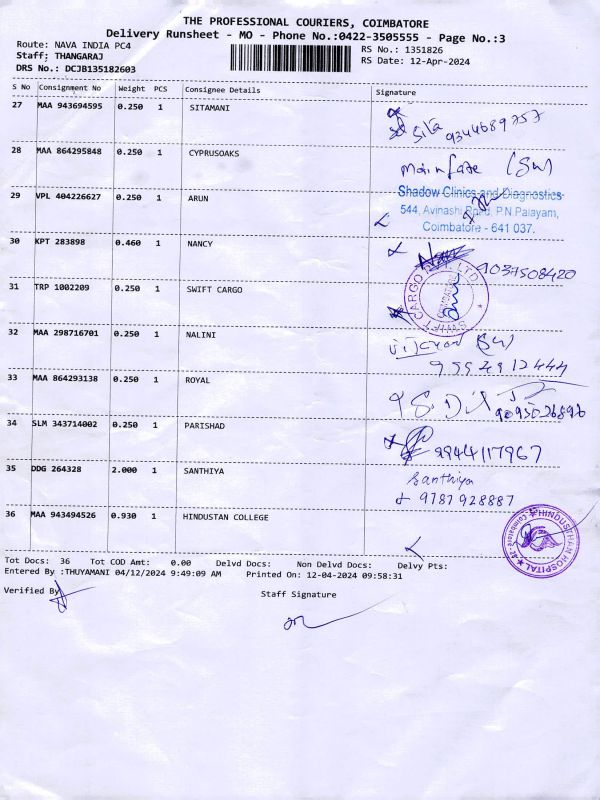 THE PROFESSIONAL COURIERS, COIMBATORE
Delivery Runsheet - MO - Phone No.:0422-3505555 - Page No.:3
Route: NAVA INDIA PC4 RS No.: 1351826
Staff: THANGARAJ RS Date: 12-Apr-2024
DRS No.: DCJB135182603
S No Consignment No Weight PCS Consignee Details Signature
27 MAA 943694595 0.250 1 SITAMANI
Sita 9344689757
28 MAA 864295848 0.250 1 CYPRUSOAKS
29 VPL 404226627 0.250 1 ARUN
Shadow Clinics and Diagnostics
544, Avinashi Road, P.N.Palayam,
Coimbatore - 641 037.
30 KPT 283898 0.460 1 NANCY
9037508420
31 TRP 1002209 0.250 1 SWIFT CARGO
SWIFT CARGO PVT. LTD.
32 MAA 298716701 0.250 1 NALINI
33 MAA 864293138 0.250 1 ROYAL
34 SLM 343714002 0.250 1 PARISHAD
9944117967
35 DDG 264328 2.000 1 SANTHIYA
Santhiya
9787928887
36 MAA 943494526 0.930 1 HINDUSTAN COLLEGE
HINDUSTHAN HOSPITAL
Coimbatore
Tot Docs: 36 Tot COD Amt: 0.00 Delvd Docs: Non Delvd Docs: Delvy Pts:
Entered By :THUYAMANI 04/12/2024 9:49:09 AM Printed On: 12-04-2024 09:58:31
Verified By
Staff Signature